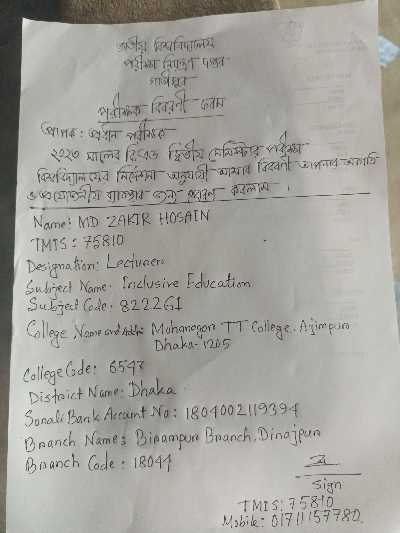 জাতীয় বিশ্ববিদ্যালয়
পরীক্ষা নিয়ন্ত্রণ দপ্তর
গাজীপুর
পরীক্ষক বিবরণী ফরম
প্রাপক: প্রধান পরীক্ষক
২০২৩ সালের বিএড দ্বিতীয় সেমিস্টার পরীক্ষা
বিশ্ববিদ্যালয়ের নির্দেশনা অনুযায়ী আমার বিবরণী আপনার অবগতি
ও প্রয়োজনীয় ব্যবস্থার জন্য প্রেরণ করলাম ।
Name: MD ZAKIR HOSAIN
TMIS: 75810
Designation: Lecturer
Subject Name: Inclusive Education
Subject Code: 822261
College Name and Address Mohanagar TT College, Azimpur
Dhaka-1205
College Code: 6547
District Name: Dhaka
Sonali Bank Account No: 1804002119394
Branch Name: Birampur Branch, Dinajpur
Branch Code: 18044
Sign
TMIS: 75810
Mobile: 01711157780